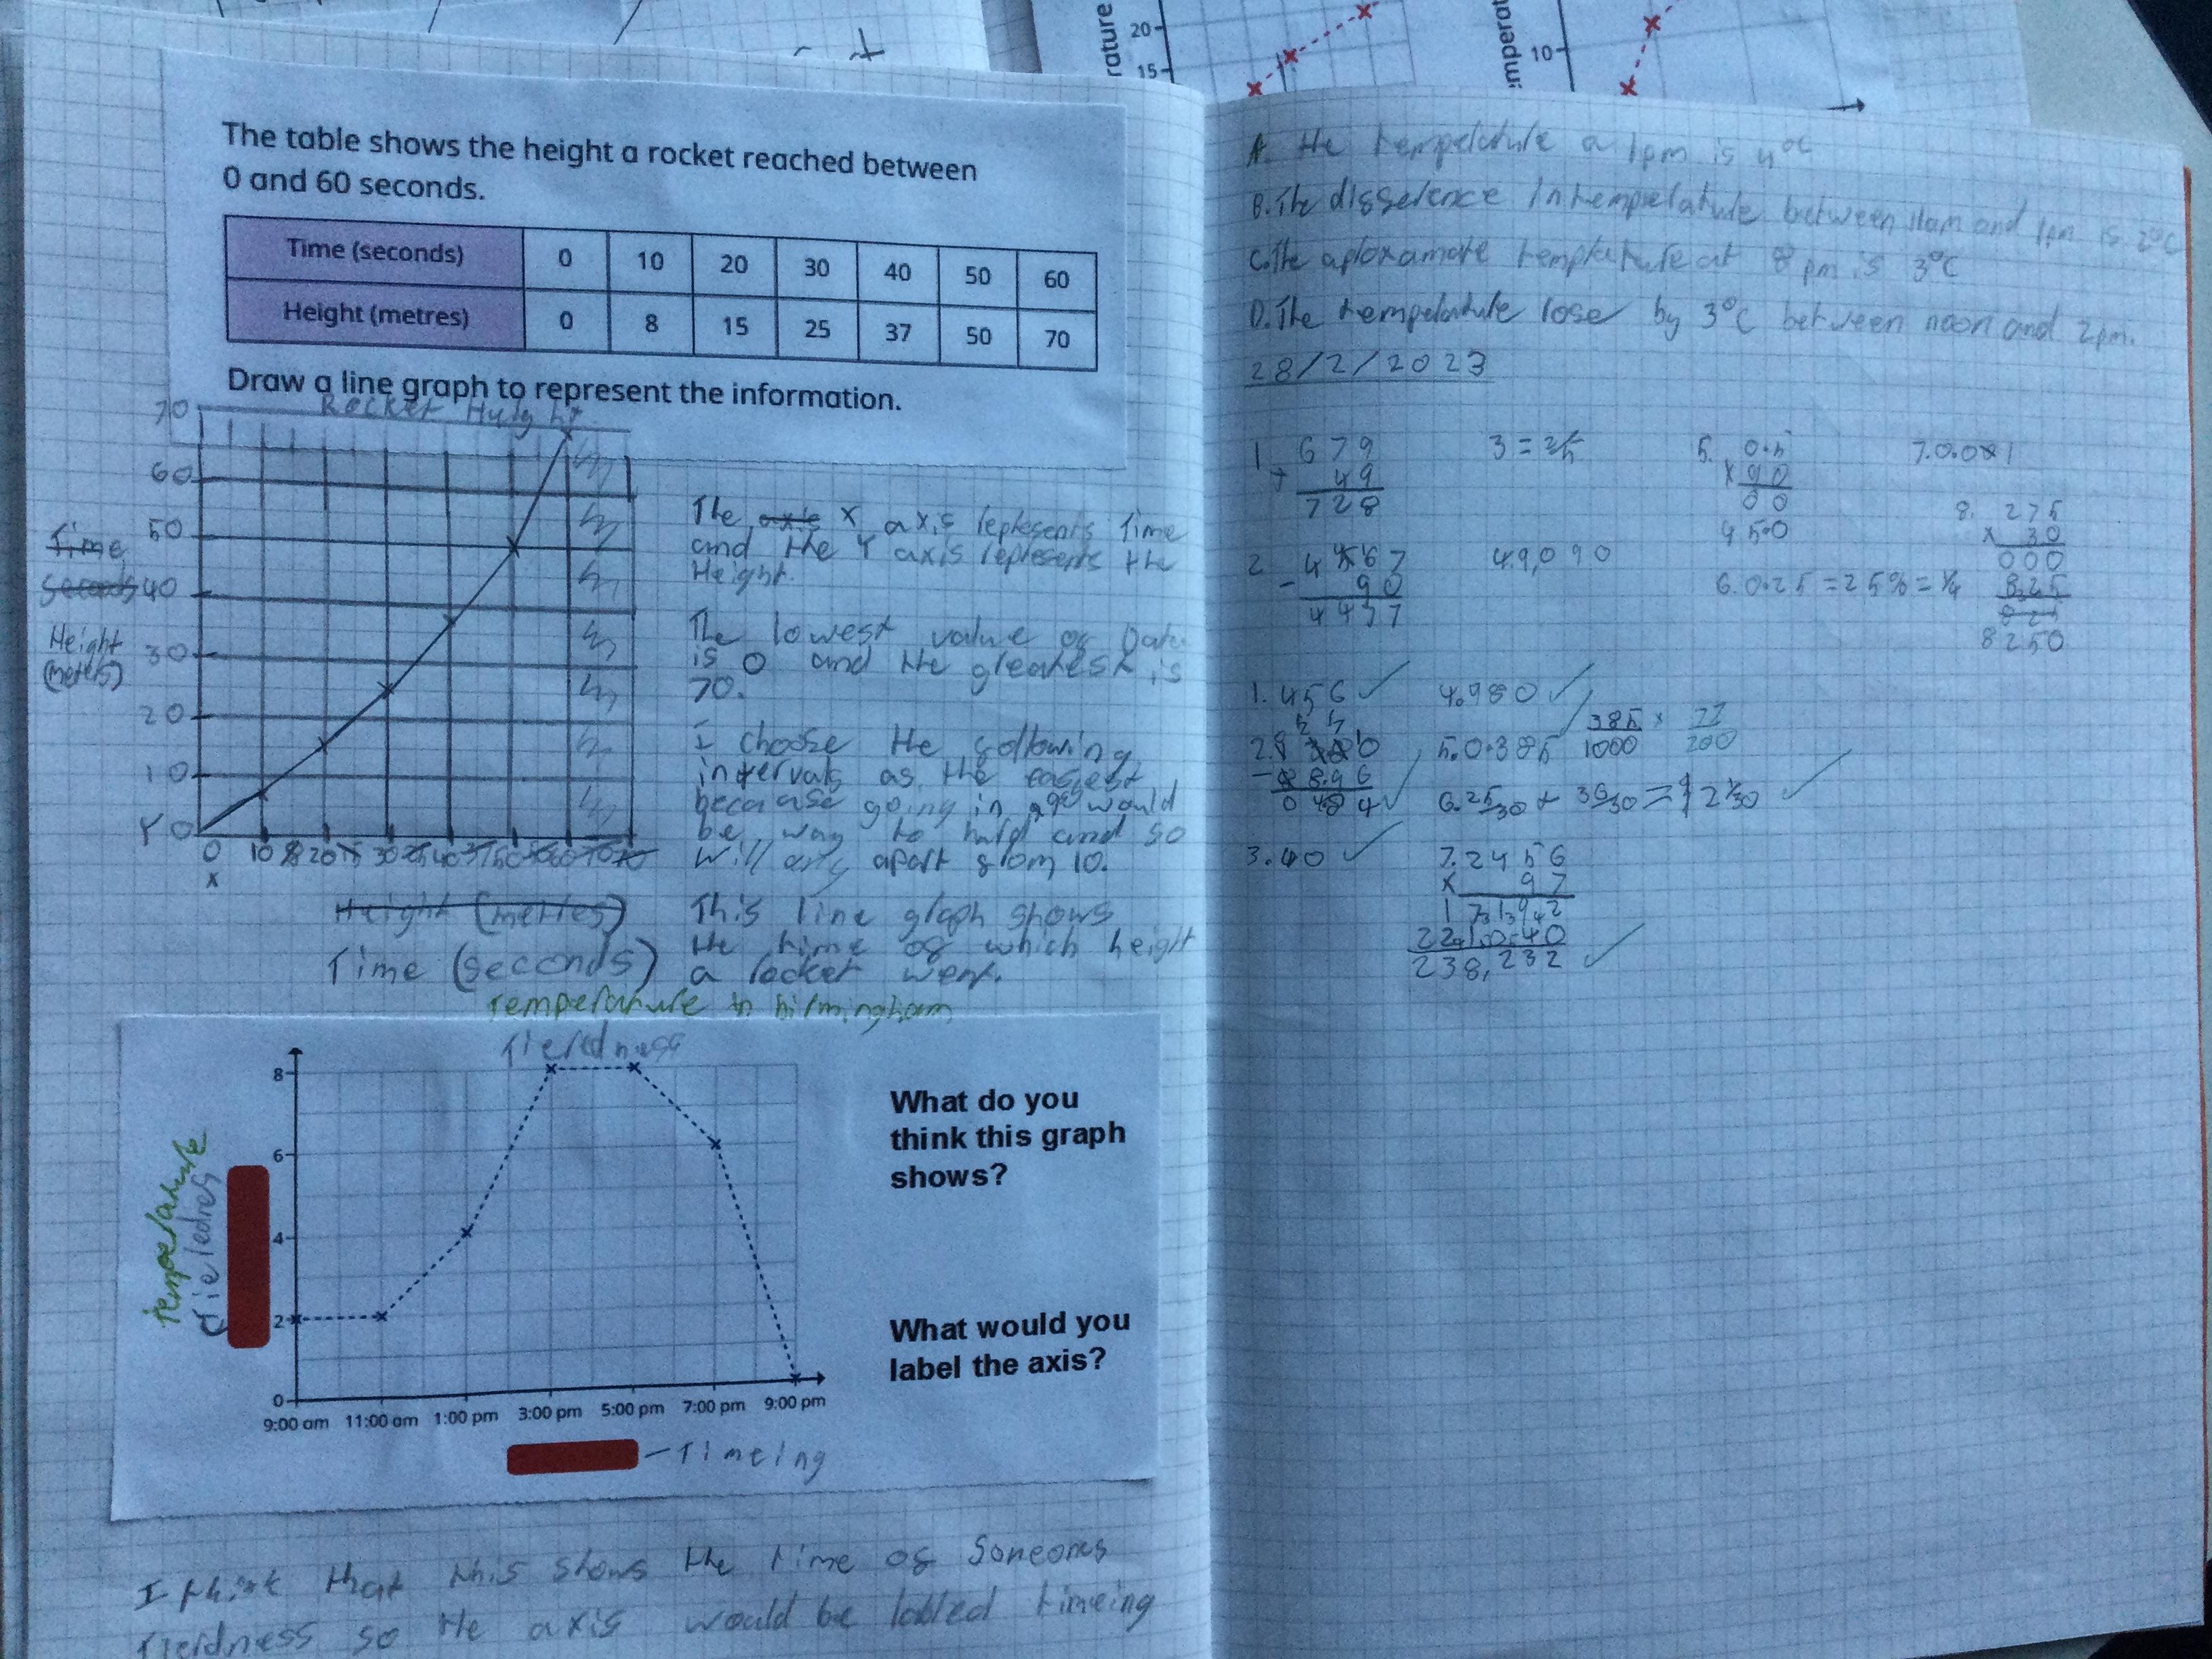 The table shows the height a rocket reached between
0 and 60 seconds.
Time (seconds) 0 10 20 30 40 50 60
Height (metres) 0 8 15 25 37 50 70
Draw a line graph to represent the information.
Rocket Hight
70
60
50
40
30
20
10
Y 0
Time
Seconds
Height
(meters)
0 10 20 30 40 50 60
X
Height (metres)
Time (seconds)
The axis X axis represents Time
and the Y axis represents the
Height.
The lowest value of Data
is 0 and the greatest is
70.
I choose the following
intervals as the easiest
because going in would
be way to hard and so
will apart from 10.
This line graph shows
the time of which height
a rocket went.
Temperature in birmingham
Tieredness
8
6
4
2
0
temperature
Tieredness
9:00 am 11:00 am 1:00 pm 3:00 pm 5:00 pm 7:00 pm 9:00 pm
Timeing
What do you
think this graph
shows?
What would you
label the axis?
I think that this shows the time of Someones
tierdness so the axis would be labled timeing
rature
20
15
mperat
10
A. the temperature a 1pm is 4°C
B. The difference in temperature between 11am and 1pm is 2°C
C. The aproxamate temperature at 8 pm is 3°C
D. The temperature rose by 3°C between noon and 2pm.
28/2/2023
1 679
+ 49
728
3 = 2/5
5. 0.5
x 90
00
450
7.0.01
2 4567
- 90
4497
49,090
6. 0.25 = 25% = 1/4
8. 275
x 30
000
8250
1. 456 ✓
4.980 ✓
5. 0.385 385/1000 77/200
3. 40 ✓
7. 2456
x 97
238,232 ✓